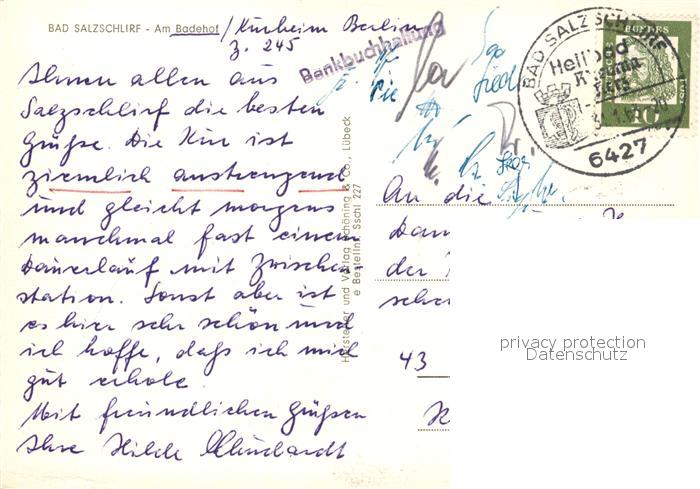 BAD SALZSCHLIRF - Am Badehof / Kurheim Berlin
Z. 245
Bankbuchhaltung
Ihnen allen aus
Salzschlirf die besten
Grüße. Die Kur ist
ziemlich anstrengend
und gleicht morgens
manchmal fast einem
Dauerlauf mit Zwischen
station. Sonst aber ist
es hier sehr schön und
ich hoffe, daß ich mich
gut erhole.
Mit freundlichen Grüßen
Ihre Hilde
Hersteller und Verlag Schöning & Co., Lübeck
e Bestellnr. Sschl 227
BAD SALZSCHLIRF
Heilbad
Rheuma
6427
BUNDES
An die
der
43
privacy protection
Datenschutz